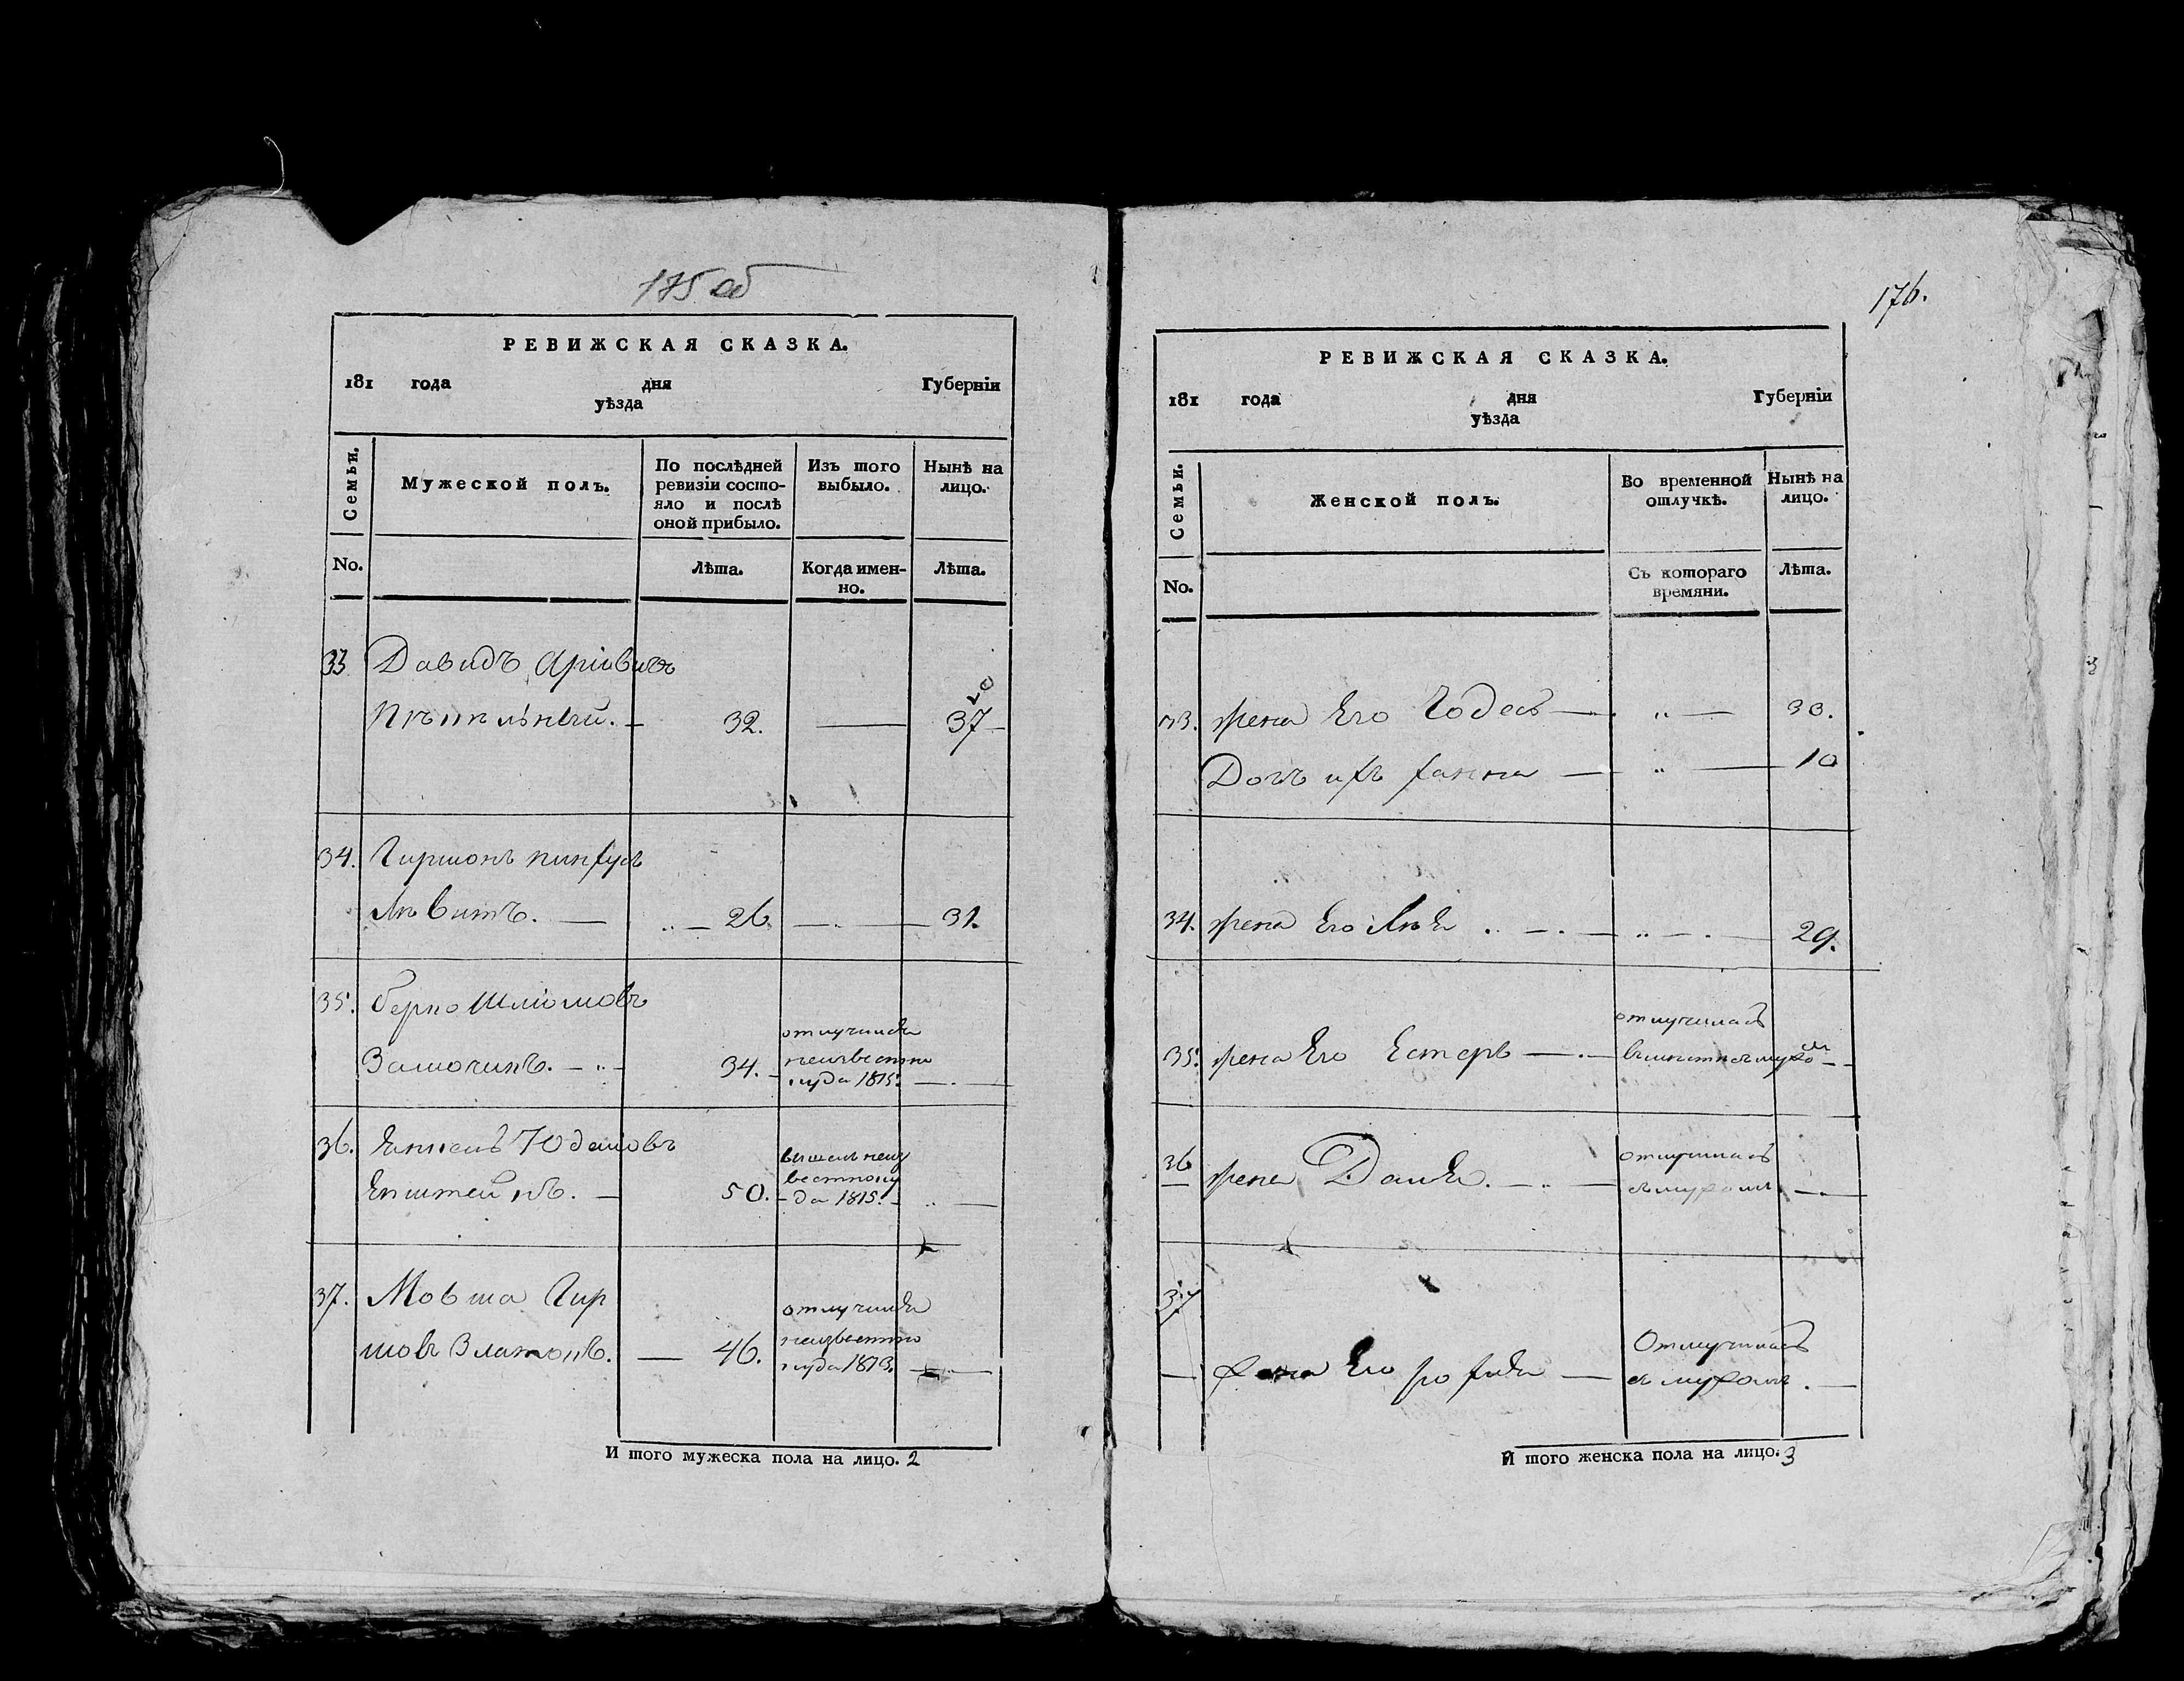 175 об
РЕВИЖСКАЯ СКАЗКА.
181 года дня Губерніи
уѣзда
Семьи.
Мужеской полъ.
По послѣдней ревизіи состо-
яло и послѣ
оной прибыло.
Изъ того
выбыло.
Нынѣ на
лицо.
No.
Лѣта.
Когда имен-
но.
Лѣта.
33 Давидъ Аріовичъ
32. 37
34. Гиршонъ Пинхусъ
Левитъ. 26 31.
35. Берко Шліомовъ
отлучился
Замочикъ. 34. неизвестно
куда 1815.
36. Янкель Юделіовъ
вышел неиз
Епштейнъ. 50. вестно ку
да 1815.
37. Мовша Гир
отлучился
шовъ Златкинъ. 46. неизвестно
куда 1813.
И того мужеска пола на лицо. 2
176.
РЕВИЖСКАЯ СКАЗКА.
181 года дня Губерніи
уѣзда
Семьи.
Женской полъ.
Во временной
отлучкѣ.
Нынѣ на
лицо.
No.
Съ котораго
времяни.
Лѣта.
33. жена Его Годесъ 30.
Дочь ихъ Ханна 10
34. жена Его Лея 29.
отлучилась
35. жена Его Естеръ вместе с мужом
36 жена Даня. отлучилась
съ мужомъ
37
Отлучилась
жена Его съ мужомъ.
И того женска пола на лицо. 3